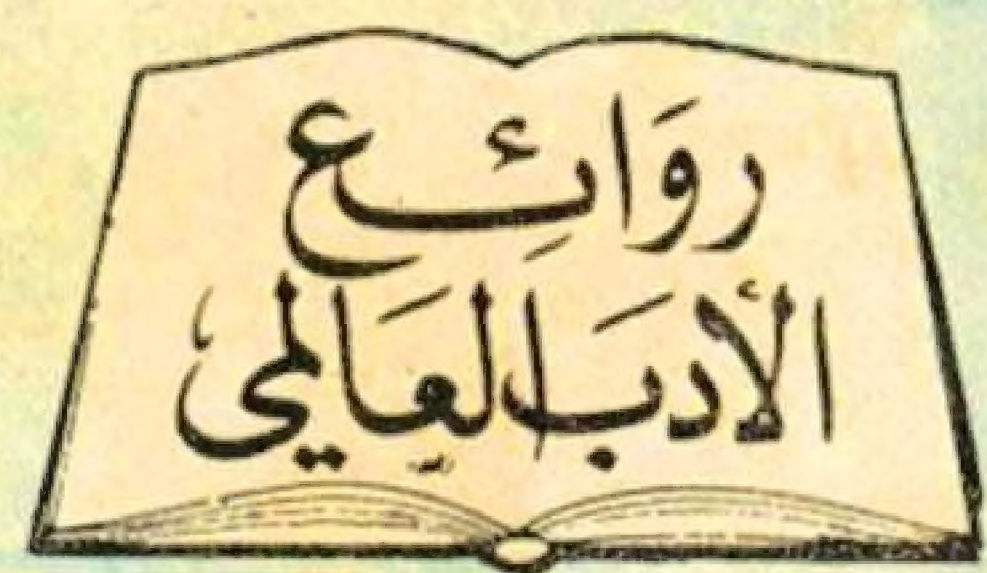 روَائِع
الأدبَ العَالمي